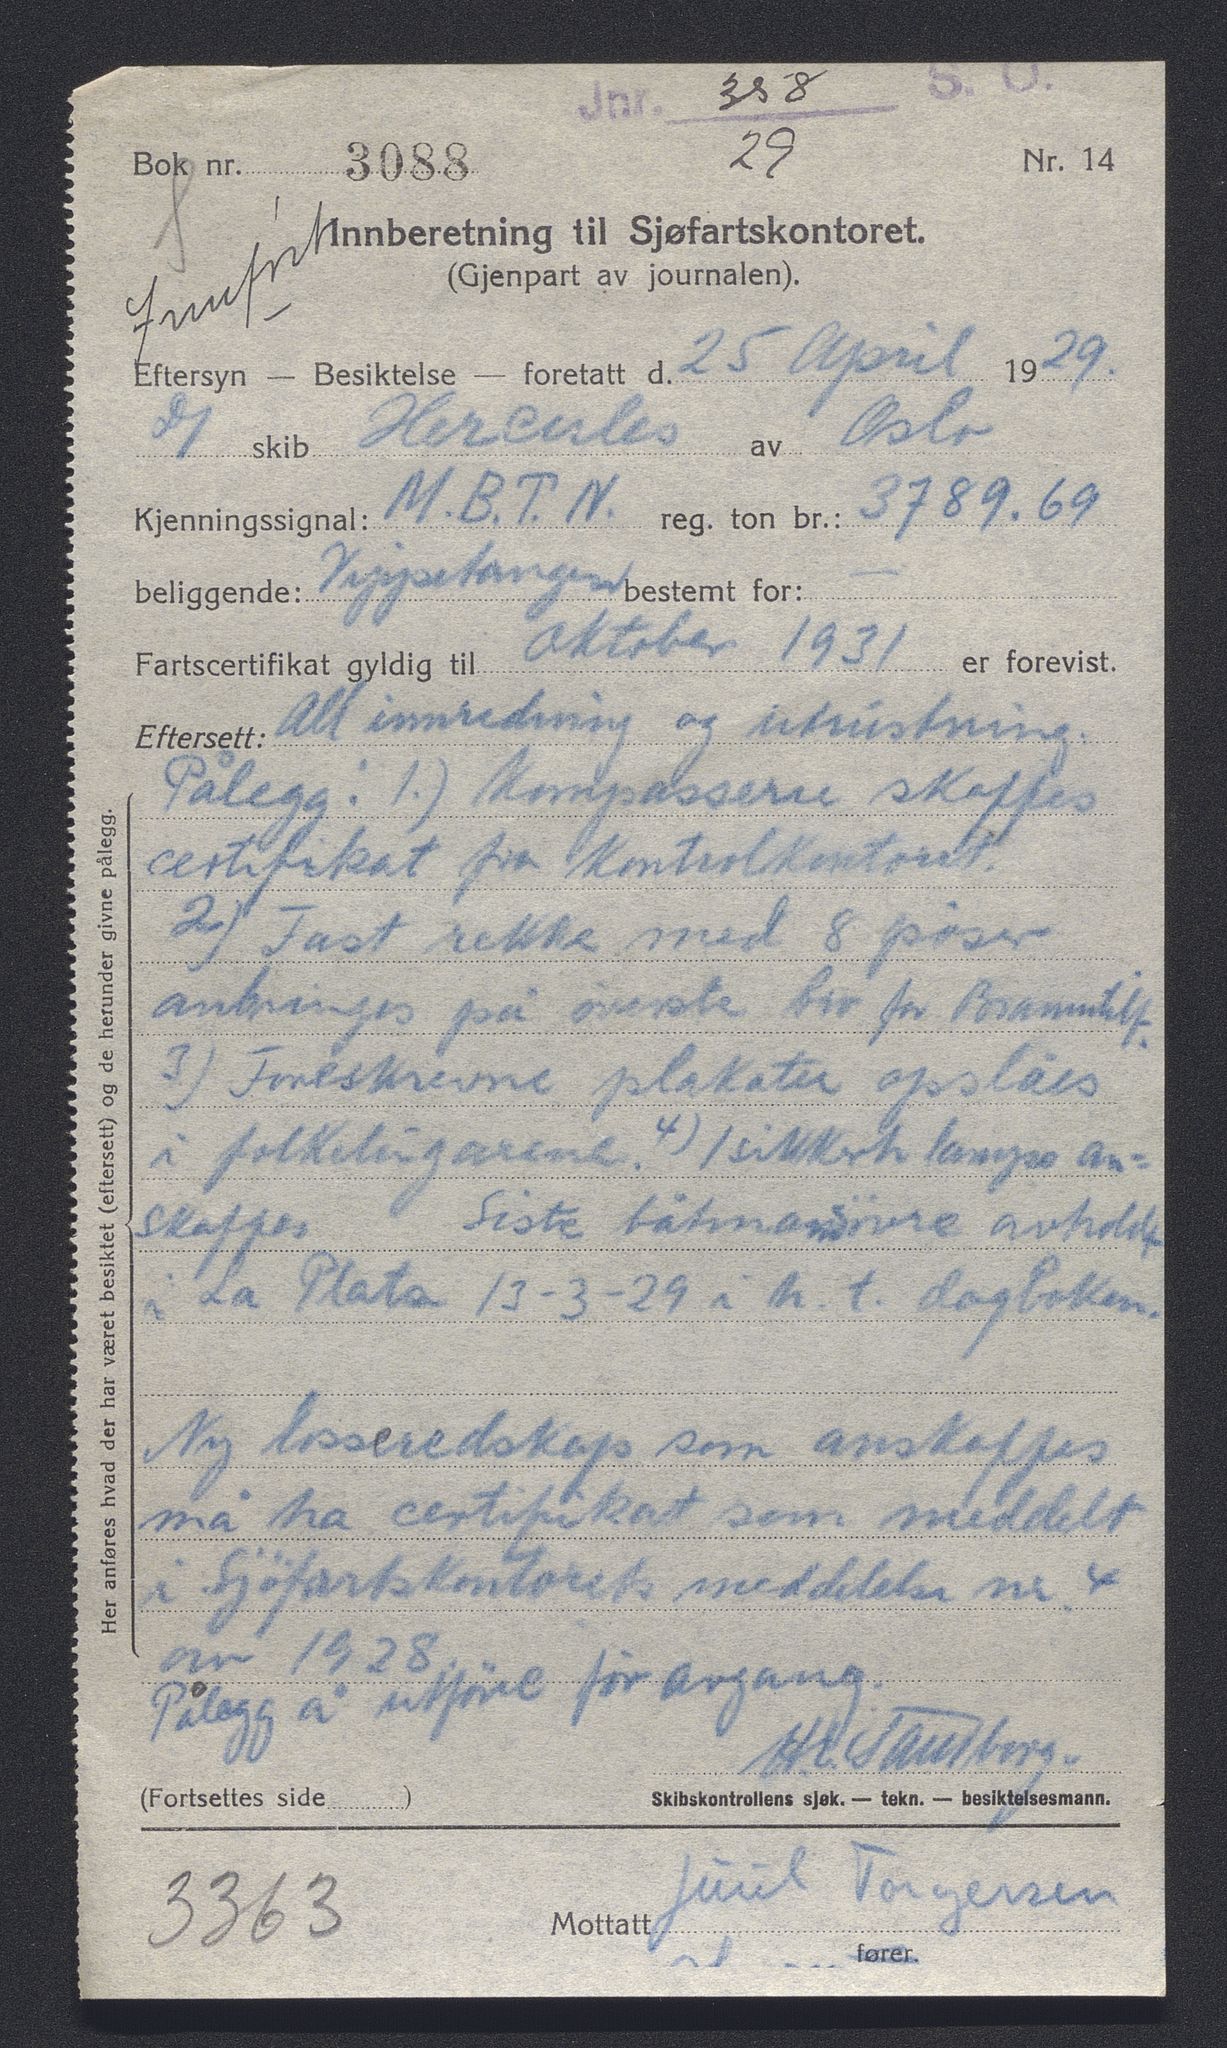 Jnr. 358 S. O.
29
Bok nr. 3088 Nr. 14
Innberetning til Sjøfartskontoret.
(Gjenpart av journalen).
Eftersyn — Besiktelse — foretatt d. 25 April 1929.
D/ skib Hercules av Oslo
Kjenningssignal: M.B.T.N. reg. ton br.: 3789.69
beliggende: Vippetangen bestemt for: —
Fartscertifikat gyldig til oktober 1931 er forevist.
Eftersett: All innredning og utrustning.
Pålegg: 1.) Kompasserne skaffes
certifikat fra Kontrolkontoret.
2) Fast rekke med 8 pøser
anbringes på øverste bro for Branntilf.
3) Foreskrevne plakater opslåes
i folkelugarene. 4) 1 sikkerh lampe an=
skaffes Siste båtmanöovre avholdt
i La Plata 13-3-29 i h. t. dagboken.
Ny losseredskap som anskaffes
må ha certifikat som meddelt
i Sjöfartskontorets meddelelse nr. 4
av 1928.
Pålegg å utföre för avgang.
Her anføres hvad der har været besiktet (eftersett) og de herunder givne pålegg.
(Fortsettes side )
Skibskontrollens sjøk. — tekn. — besiktelsesmann.
3363
Juul Torgersen
Mottatt
fører.